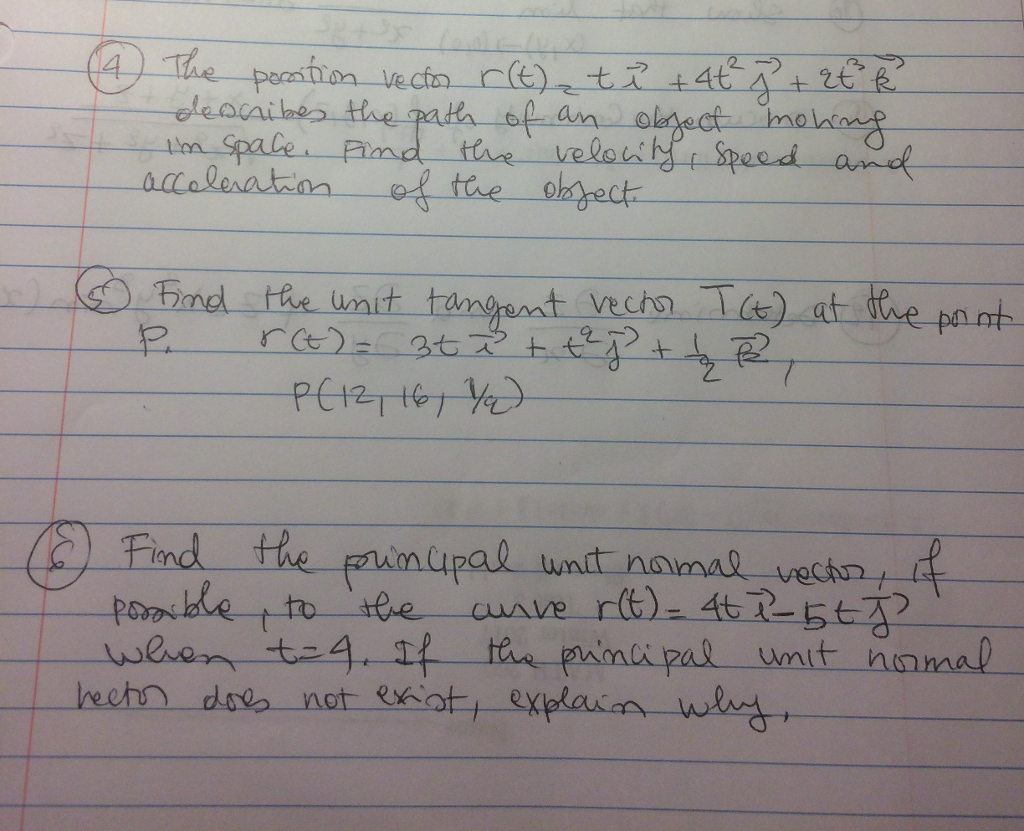 ④ The position vector r(t) = t i⃗ + 4t² j⃗ + 2t³ k⃗
describes the path of an object moving
in space. Find the velocity, speed and
acceleration of the object.
⑤ Find the unit tangent vector T(t) at the point
P. r(t) = 3t i⃗ + t² j⃗ + 1/2 k⃗,
P(12, 16, 1/2)
⑥ Find the principal unit normal vector, if
possible, to the curve r(t) = 4t i⃗ - 5t j⃗
when t=4. If the principal unit normal
vector does not exist, explain why.